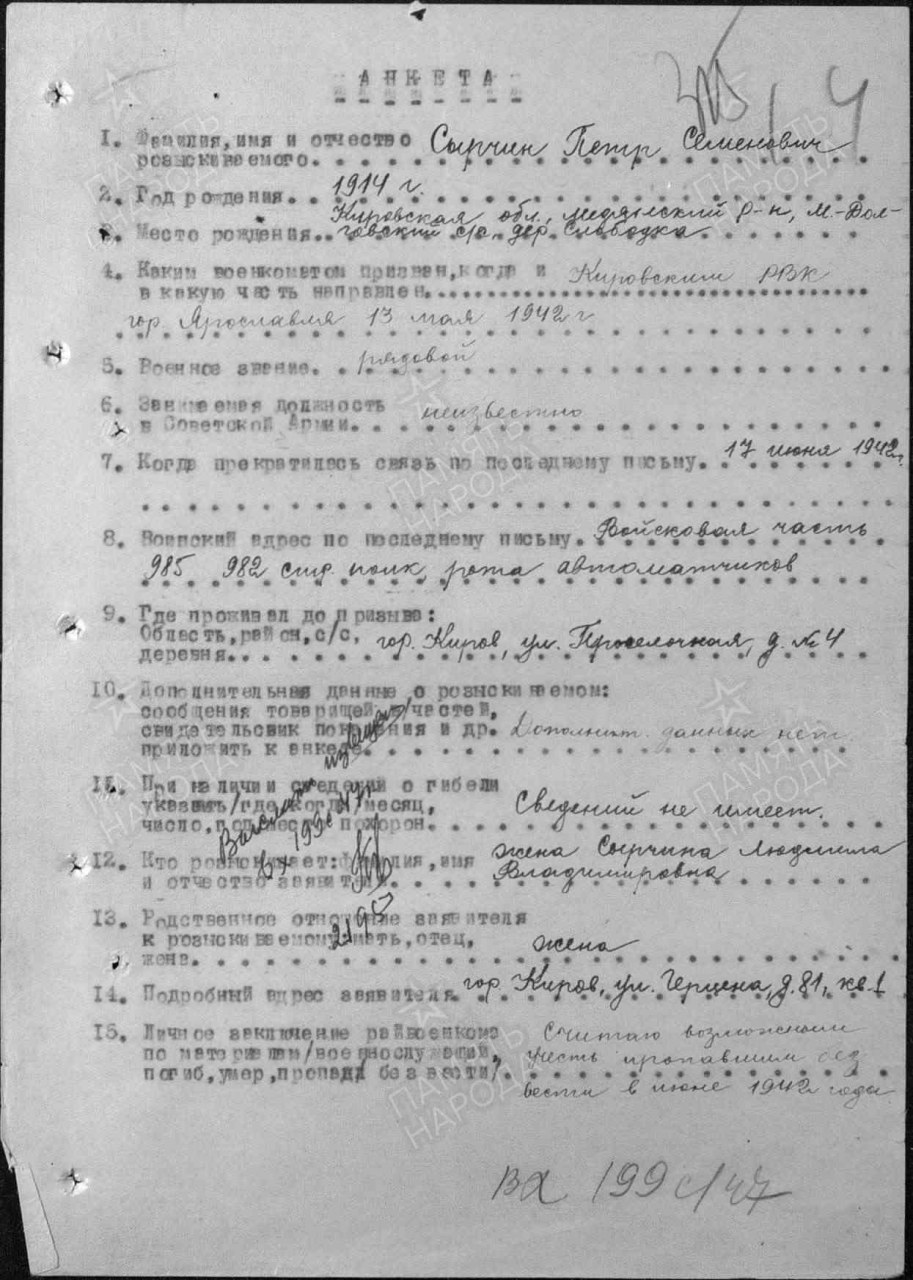 АНКЕТА
14
1. Фамилия, имя и отчество Сырчин Петр Семенович
розыскиваемого.
2. Год рождения. 1914 г.
Кировская обл., Медянский р-н, М-Дол-
3. Место рождения. говский с/с, дер. Слободка
4. Каким военкоматом призван, когда и Кировским РВК
в какую часть направлен.
гор. Ярославль 13 мая 1942 г
5. Военное звание. рядовой
6. Занимаемая должность неизвестно
в Советской Армии.
7. Когда прекратилась связь по последнему письму. 17 июня 1942 г.
8. Воинский адрес по последнему письму. Войсковая часть
985 982 стр. полк рота автоматчиков
9. Где проживал до призыва:
Область, район, с/с, гор. Киров, ул. Проселочная, д. № 4
деревня.
10. Дополнительная данные о розыскиваемом:
сообщения товарищей, частей,
свидетельские показания и др. Дополнит. данных нет.
приложить к анкете.
11. При наличии сведений о гибели
указать/где, когда, месяц, Сведений не имеет.
число, год, место похорон.
Выслан извещен
вх 199с/47
12. Кто розыскивает: фамилия, имя жена Сырчина Людмила
и отчество заявителя. Владимировна
13. Родственное отношение заявителя
к розыскиваемому/мать, отец, жена
жена.
14. Подробный адрес заявителя. гор. Киров, ул. Герцена, д. 81, кв. 1
15. Личное заключение райвоенкома Считаю возможным
по материалам/военнослужащий, учесть пропавшим без
погиб, умер, пропал без вести/. вести в июне 1942 года.
вх 199с/47
ПАМЯТЬ
НАРОДА